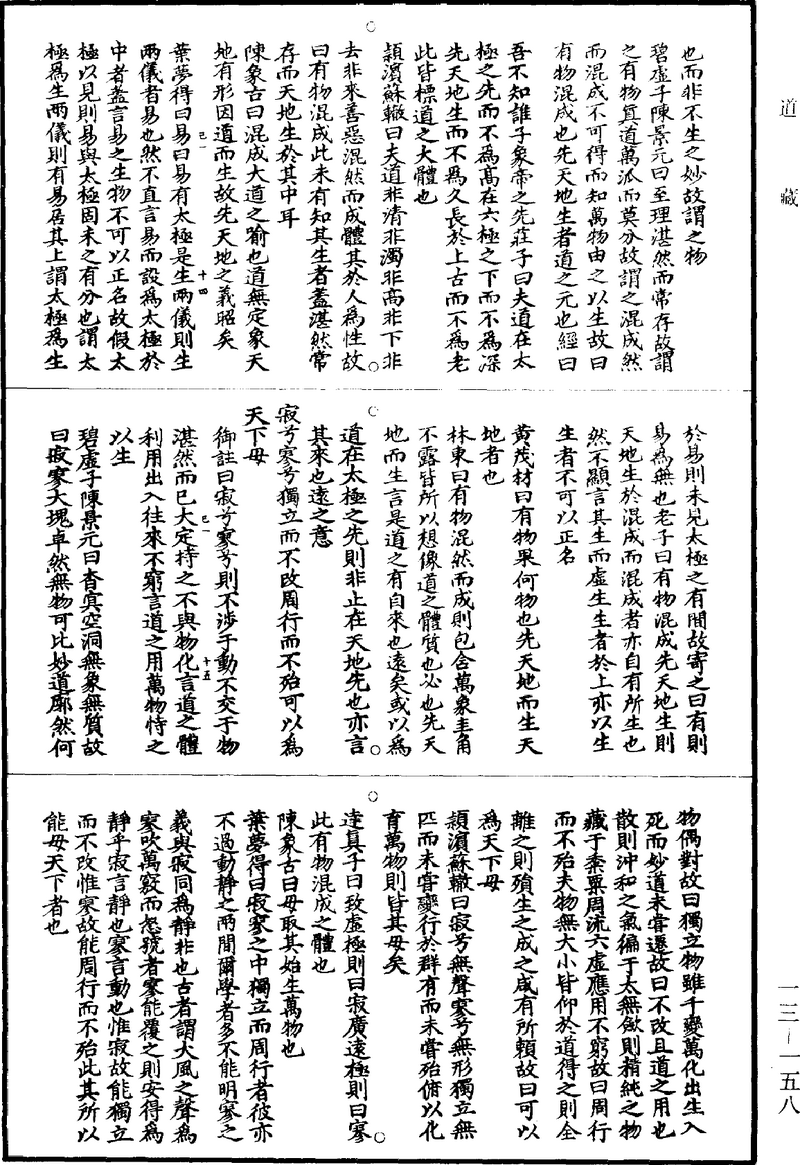 道藏
也而非不生之妙故謂之物
碧虛子陳景元曰至理湛然而常存故謂
之有物真道萬派而莫分故謂之混成然
而混成不可得而知萬物由之以生故曰
有物混成也先天地生者道之元也經曰
吾不知誰子象帝之先莊子曰夫道在太
極之先而不為高在六極之下而不為深
先天地生而不為久長於上古而不為老
此皆標道之大體也
頴濱蘇轍曰夫道非清非濁非高非下非
去非來善惡混然而成體其於人為性故
曰有物混成此未有知其生者蓋湛然常
存而天地生於其中耳
陳象古曰混成大道之喻也道無定象天
地有形因道而生故先天地之義昭矣
己一
十四
葉夢得曰易曰易有太極是生兩儀則生
兩儀者易也然不直言易而設為太極於
中者蓋言易之生物不可以正名故假太
極以見則易與太極固未之有分也謂太
極為生兩儀則有易居其上謂太極為生
於易則未見太極之有間故寄之曰有則
易為無也老子曰有物混成先天地生則
天地生於混成而混成者亦自有所生也
然不顯言其生而虛生生者於上亦以生
生者不可以正名
黃茂材曰有物果何物也先天地而生天
地者也
林東曰有物混然而成則包含萬象圭角
不露皆所以想像道之體質也必也先天
地而生言是道之有自來也遠矣或以為
道在太極之先則非止在天地先也亦言
其來也遠之意
寂兮寥兮獨立而不改周行而不殆可以為
天下母
御註曰寂兮寥兮則不涉于動不交于物
湛然而已大定持之不與物化言道之體
己一
十五
利用出入往來不窮言道之用萬物恃之
以生
碧虛子陳景元曰杳冥空洞無象無質故
曰寂寥大塊卓然無物可比妙道廓然何
物偶對故曰獨立物雖千變萬化出生入
死而妙道未嘗遷故曰不改且道之用也
散則沖和之氣徧于太無斂則精純之物
藏于黍粟周流六虛應用不窮故曰周行
而不殆夫物無大小皆仰於道得之則全
離之則殞生之成之咸有所賴故曰可以
為天下母
頴濱蘇轍曰寂兮無聲寥兮無形獨立無
匹而未嘗變行於群有而未嘗殆俯以化
育萬物則皆其母矣
達真子曰致虛極則曰寂廣遠極則曰寥
此有物混成之體也
陳象古曰母取其始生萬物也
葉夢得曰寂寥之中獨立而周行者彼亦
不過動靜之兩間爾學者多不能明寥之
義與寂同為靜非也古者謂大風之聲為
寥吹萬竅而怒號者寥能覆之則安得為
靜乎寂言靜也寥言動也惟寂故能獨立
而不改惟寥故能周行而不殆此其所以
能母天下者也
一三—一五八